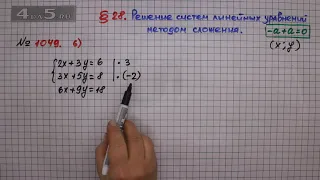 4 на 5.ru
§ 28. Решение систем линейных уравнений
методом сложения.
-a+a=0
(x; y)
№ 1049. б)
{2x+3y=6 | · 3
3x+5y=8 | · (-2)
6x+9y=18